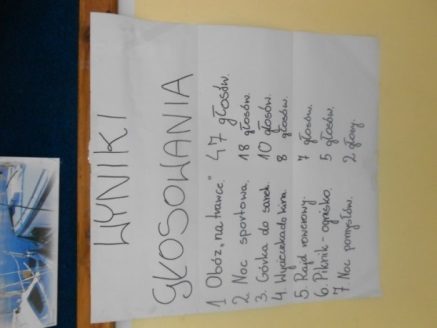 WYNIKI
GŁOSOWANIA
1 Obóz „na trawce" 47 głosów.
2 Noc sportowa. 18 głosów.
3. Górka do sanek 10 głosów.
4. Wycieczka do kina. 8 głosów.
5 Rajd rowerowy. 7 głosów.
6. Piknik - ognisko. 5 głosów.
7 Noc pomysłów. 2 głosy.